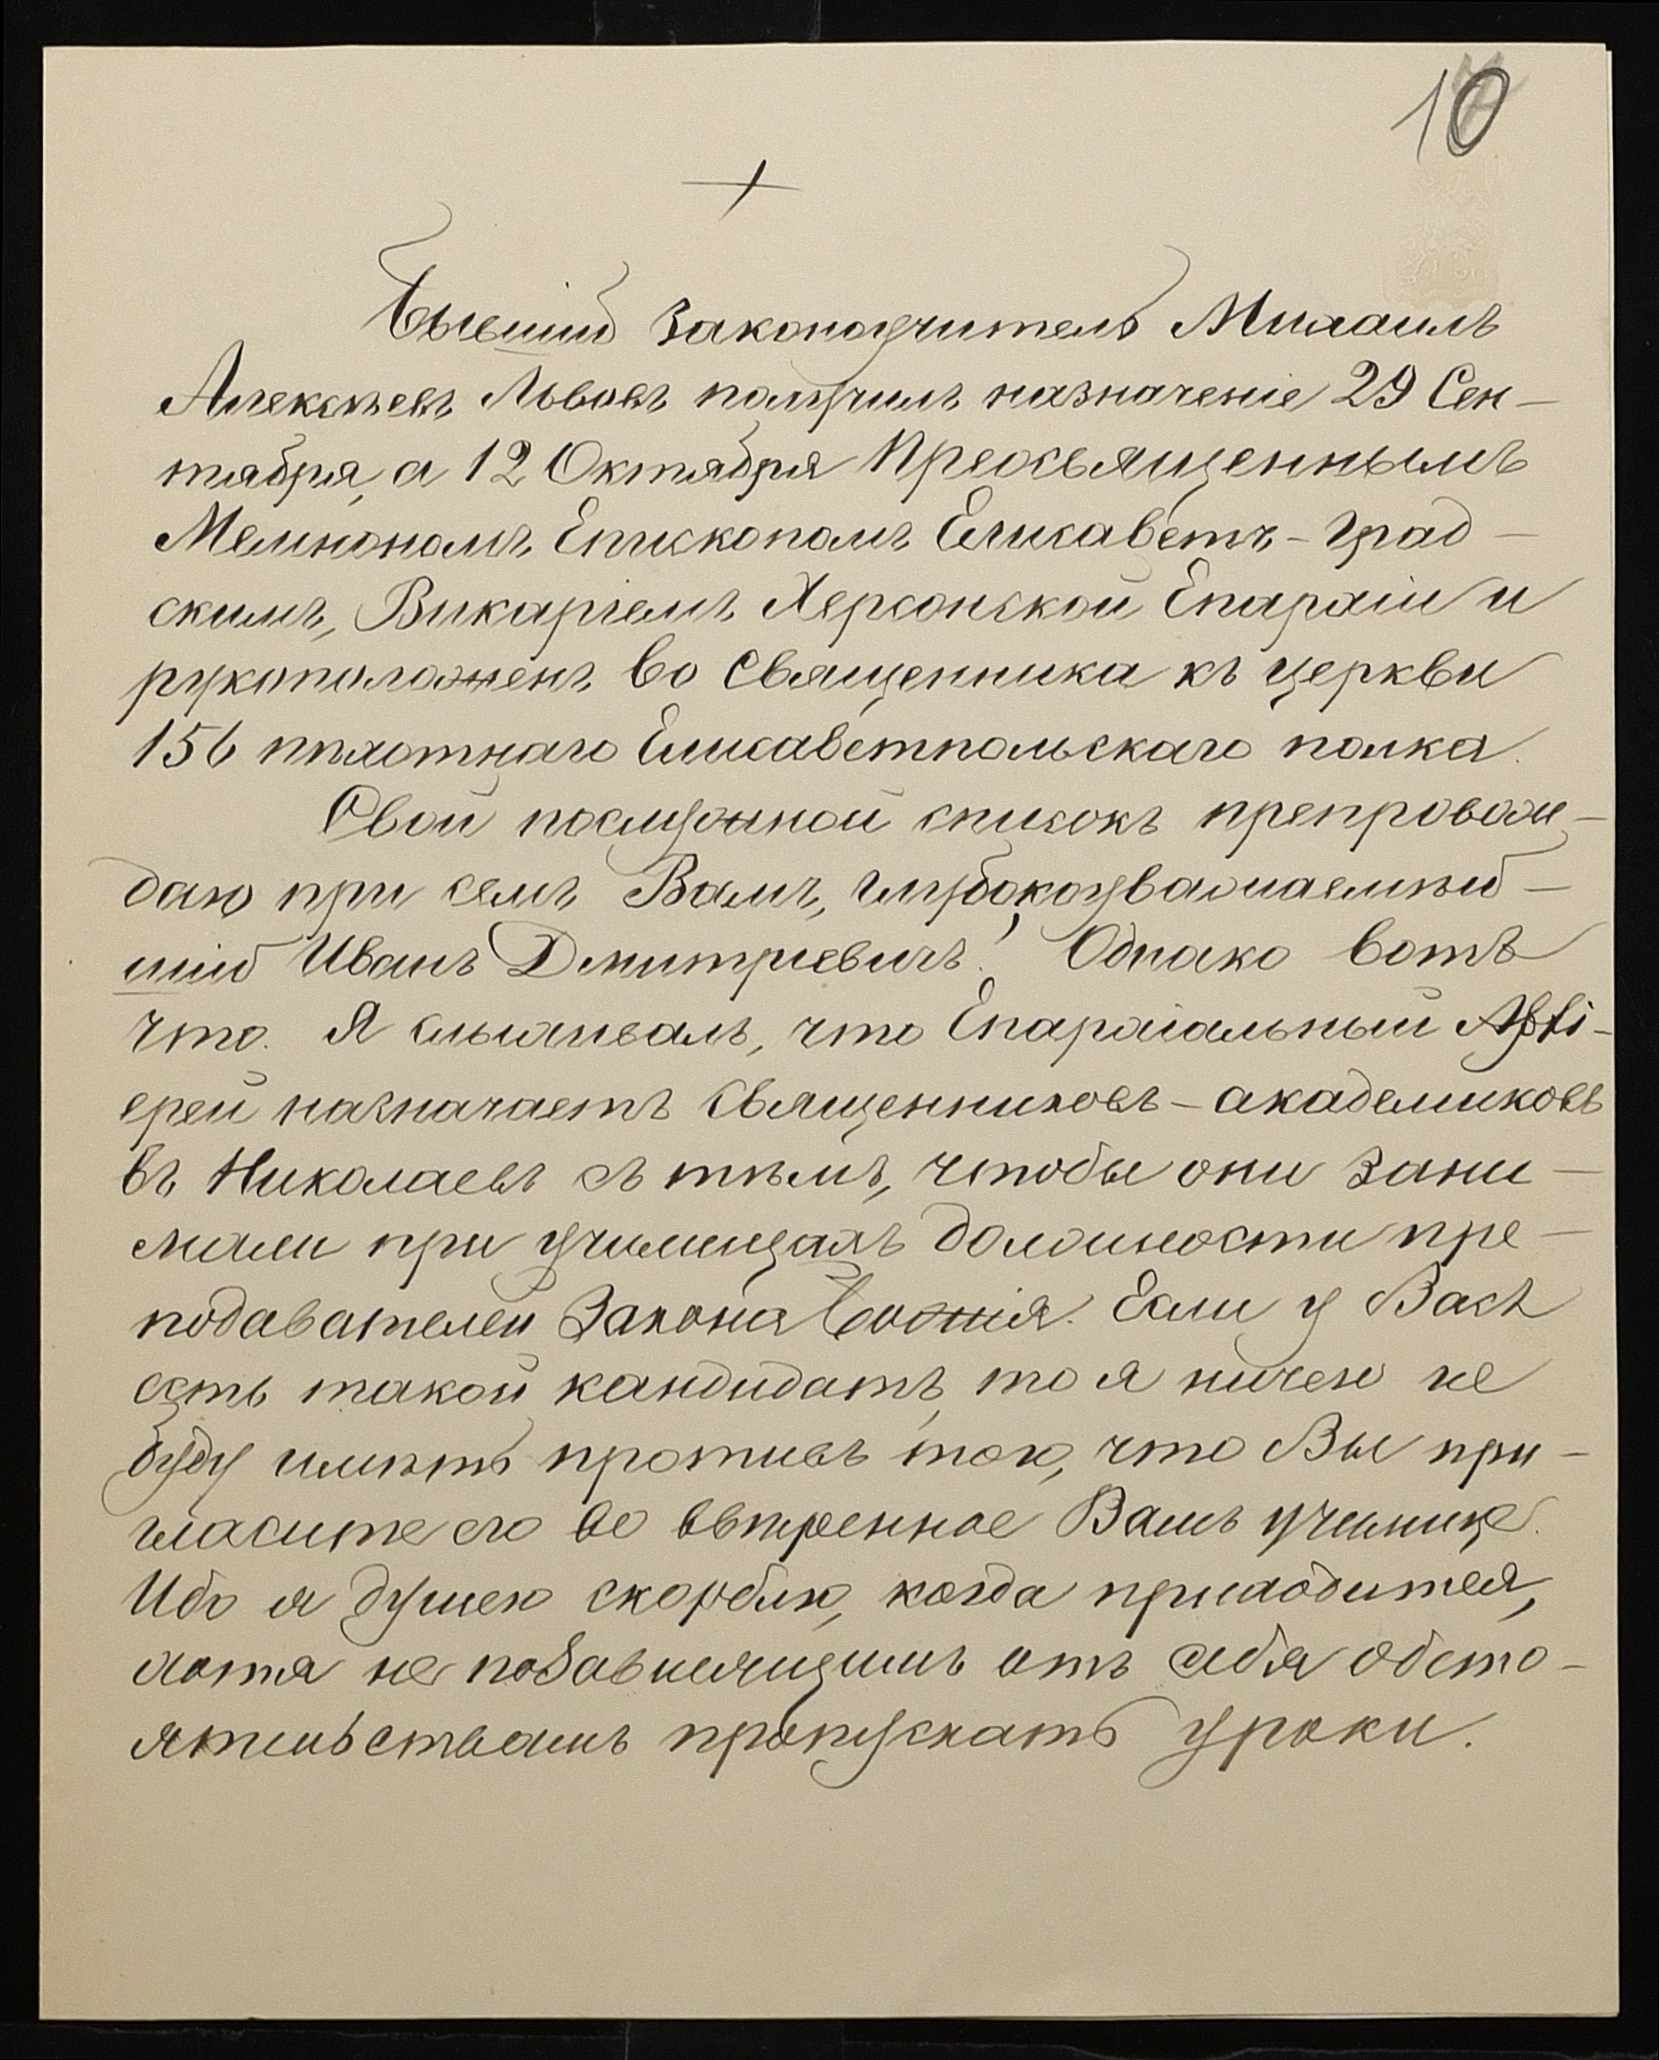 10
+
Бывшій Законоучитель Михаилъ
Алексѣевъ Львовъ получилъ назначеніе 29 Сен-
тября, а 12 Октября Преосвященнымъ
Мемнономъ Епископомъ Елисаветъ-Град-
скимъ, Викаріемъ Херсонской Епархіи и
рукоположенъ во Священника къ церкви
156 пѣхотнаго Елисаветпольскаго полка.
Свой послужной списокъ препровож-
даю при семъ Вамъ, глубокоуважаемѣй-
шій Иванъ Дмитріевичъ! Однако вотъ
что. Я слыхивалъ, что Епархіальный Архі-
ерей назначаетъ Священниковъ-академиковъ
въ Николаевъ съ тѣмъ, чтобы они зани-
мали при училищахъ должности пре-
подавателей Закона Божія. Если у Васъ
есть такой кандидатъ, то я ничего не
буду имѣть противъ того, что Вы при-
гласите его во ввѣренное Вамъ училище.
Ибо я душею скорблю, когда приходится,
хотя не по зависящимъ отъ себя обсто-
ятельствамъ пропускать уроки.